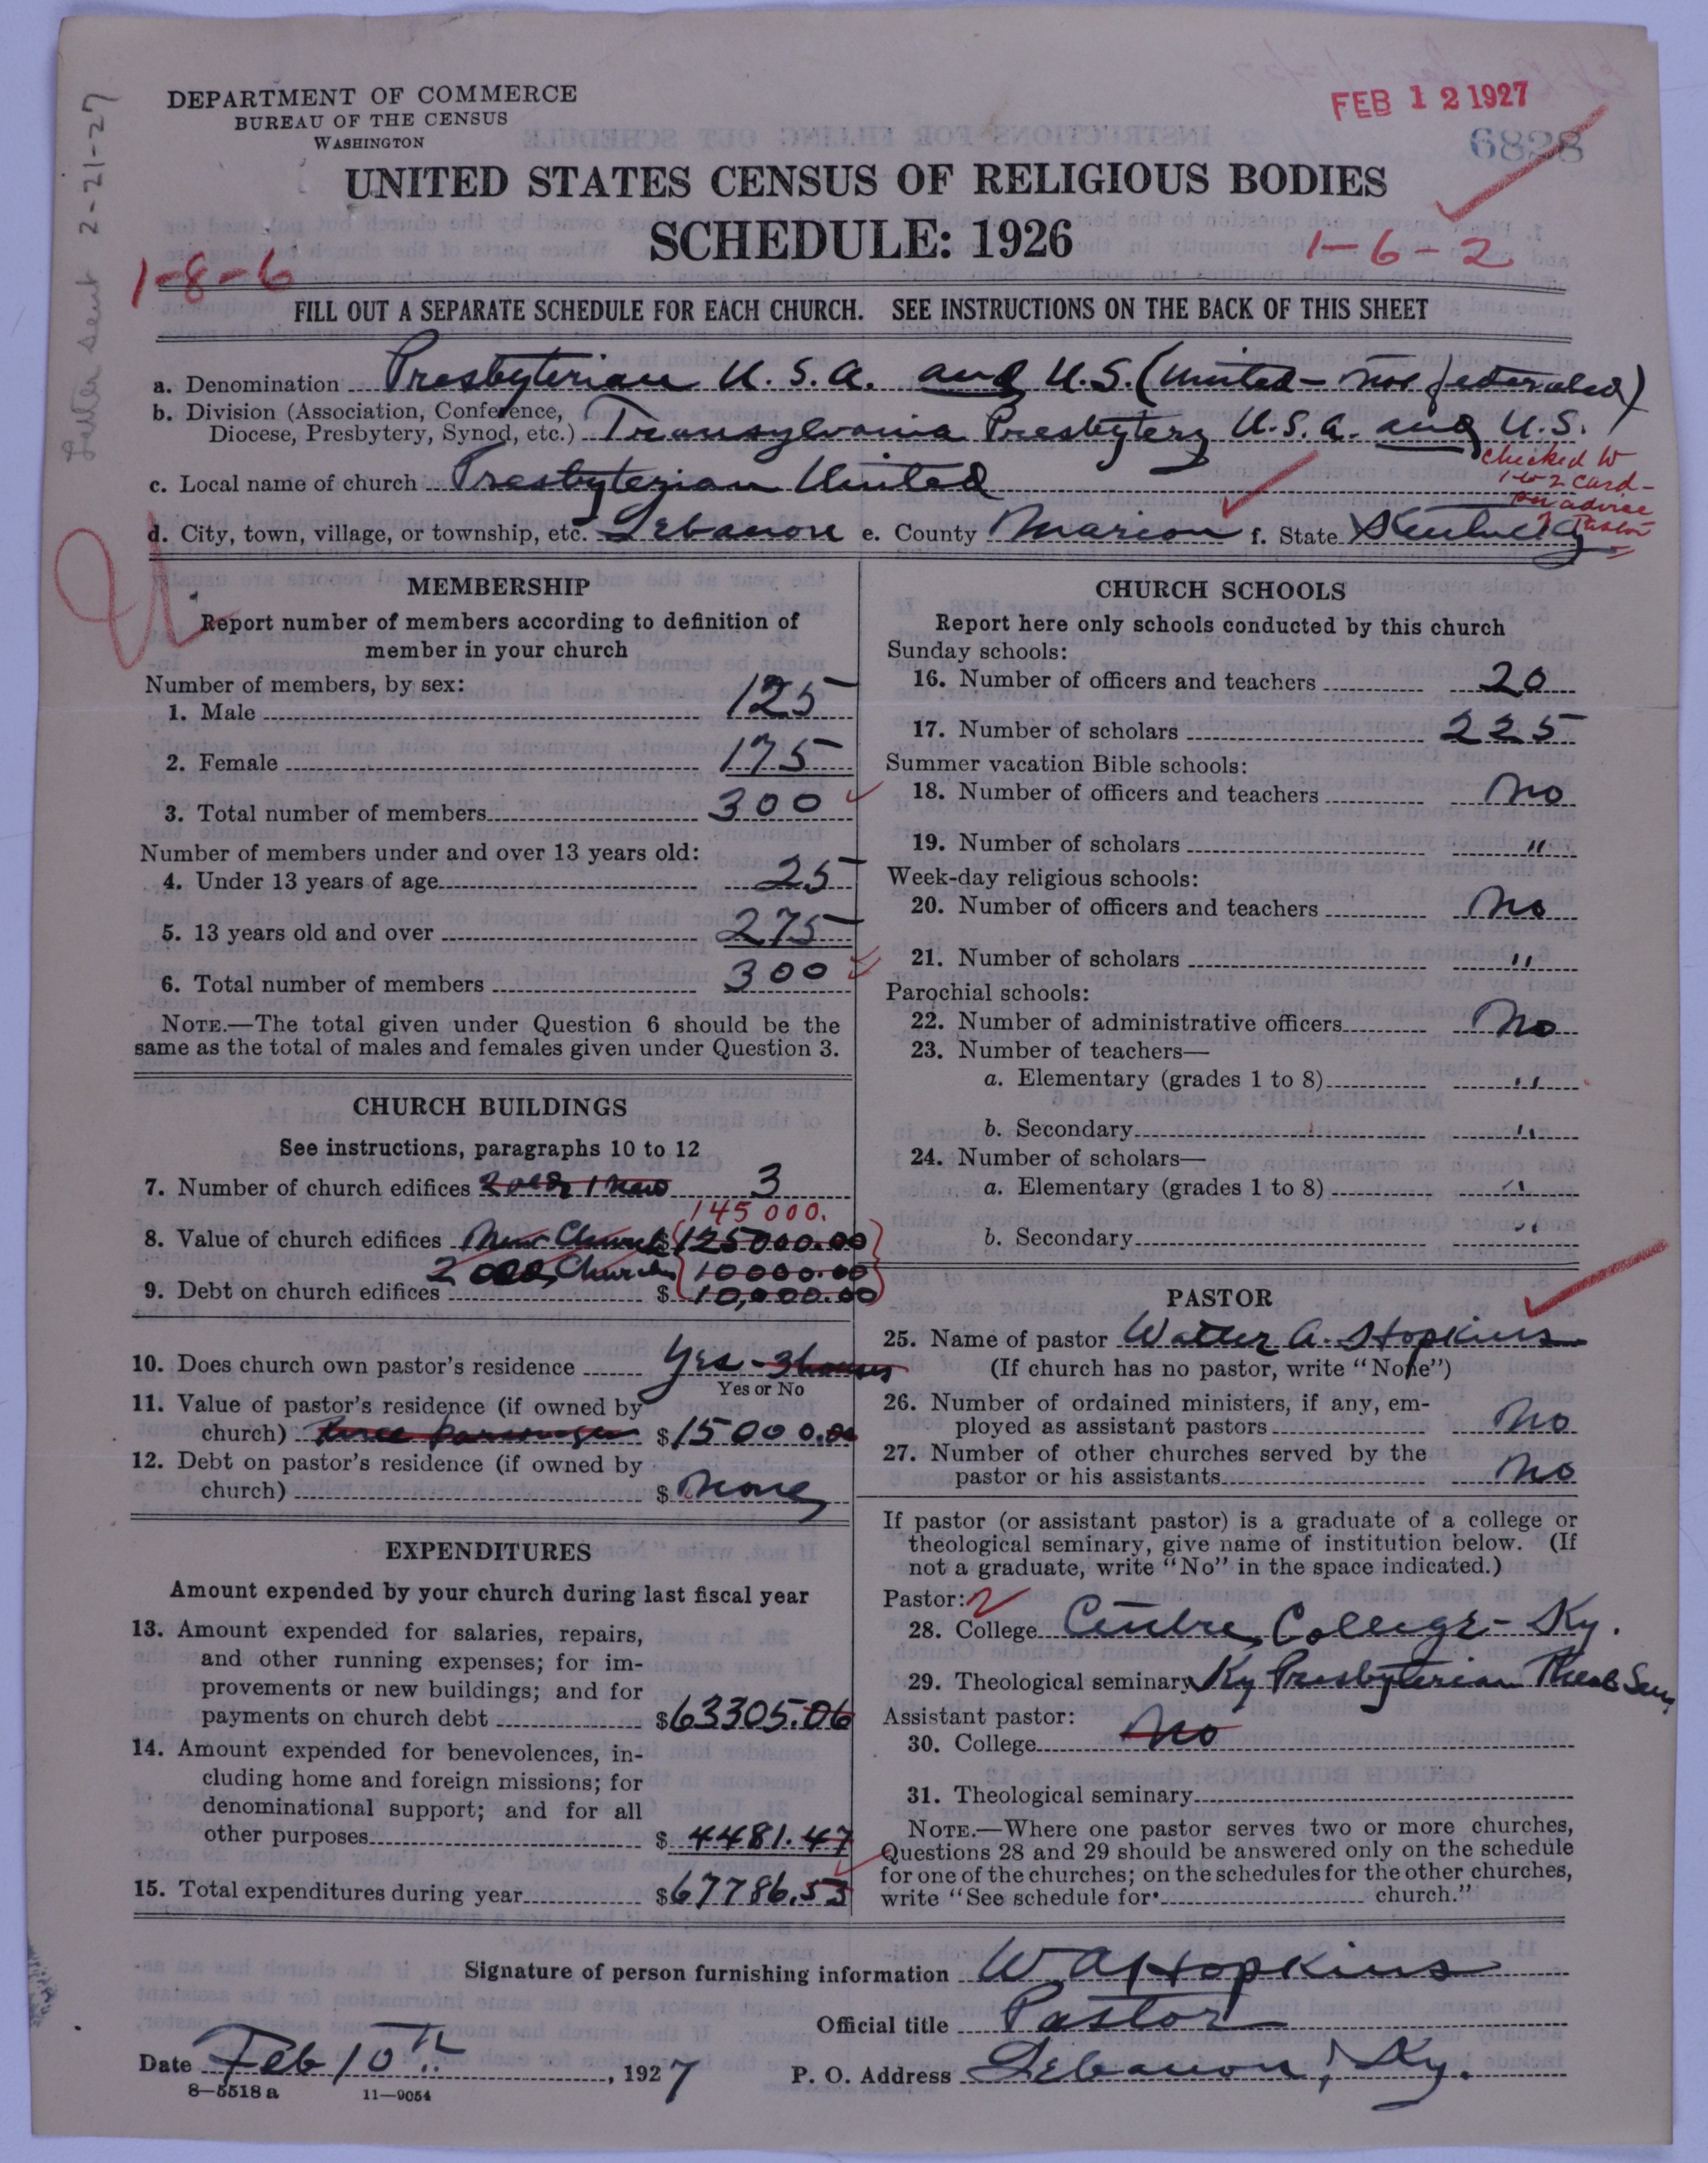 DEPARTMENT OF COMMERCE
BUREAU OF THE CENSUS
WASHINGTON
FEB 12 1927
6828
Letter sent 2-21-27
UNITED STATES CENSUS OF RELIGIOUS BODIES
SCHEDULE: 1926
1-8-6
1-6-2
FILL OUT A SEPARATE SCHEDULE FOR EACH CHURCH. SEE INSTRUCTIONS ON THE BACK OF THIS SHEET
a. Denomination Presbyterian U.S.A. and U.S. (United - not federated)
b. Division (Association, Conference, Diocese, Presbytery, Synod, etc.) Transylvania Presbytery U.S.A. and U.S.
checked W
1 W 2 card -
on advice
of Pastor
c. Local name of church Presbyterian United
d. City, town, village, or township, etc. Lebanon e. County Marion f. State Kentucky
MEMBERSHIP
Report number of members according to definition of
member in your church
Number of members, by sex:
1. Male 125
2. Female 175
3. Total number of members 300
Number of members under and over 13 years old:
4. Under 13 years of age 25
5. 13 years old and over 275
6. Total number of members 300
NOTE.—The total given under Question 6 should be the
same as the total of males and females given under Question 3.
CHURCH BUILDINGS
See instructions, paragraphs 10 to 12
7. Number of church edifices 2 old 1 new 3
145 000.
8. Value of church edifices New Church $125000.00
2 old Church 10000.00
9. Debt on church edifices $ 10,000.00
10. Does church own pastor's residence Yes - 3 houses
Yes or No
11. Value of pastor's residence (if owned by
church) three Parsonages $15000.00
12. Debt on pastor's residence (if owned by
church) $ None
EXPENDITURES
Amount expended by your church during last fiscal year
13. Amount expended for salaries, repairs,
and other running expenses; for im-
provements or new buildings; and for
payments on church debt $63305.06
14. Amount expended for benevolences, in-
cluding home and foreign missions; for
denominational support; and for all
other purposes $ 4481.47
15. Total expenditures during year $67786.53
CHURCH SCHOOLS
Report here only schools conducted by this church
Sunday schools:
16. Number of officers and teachers 20
17. Number of scholars 225
Summer vacation Bible schools:
18. Number of officers and teachers No
19. Number of scholars "
Week-day religious schools:
20. Number of officers and teachers No
21. Number of scholars "
Parochial schools:
22. Number of administrative officers No
23. Number of teachers—
a. Elementary (grades 1 to 8) "
b. Secondary "
24. Number of scholars—
a. Elementary (grades 1 to 8) "
b. Secondary "
PASTOR
25. Name of pastor Walter A. Hopkins
(If church has no pastor, write "None")
26. Number of ordained ministers, if any, em-
ployed as assistant pastors No
27. Number of other churches served by the
pastor or his assistants No
If pastor (or assistant pastor) is a graduate of a college or
theological seminary, give name of institution below. (If
not a graduate, write "No" in the space indicated.)
Pastor: 2
28. College Centre College - Ky.
29. Theological seminary Ky Presbyterian Theol Sem
Assistant pastor:
30. College No
31. Theological seminary
NOTE.—Where one pastor serves two or more churches,
Questions 28 and 29 should be answered only on the schedule
for one of the churches; on the schedules for the other churches,
write "See schedule for church."
Signature of person furnishing information W A Hopkins
Official title Pastor
Date Feb 10th, 1927 P. O. Address Lebanon, Ky.
8—5518a 11—9054